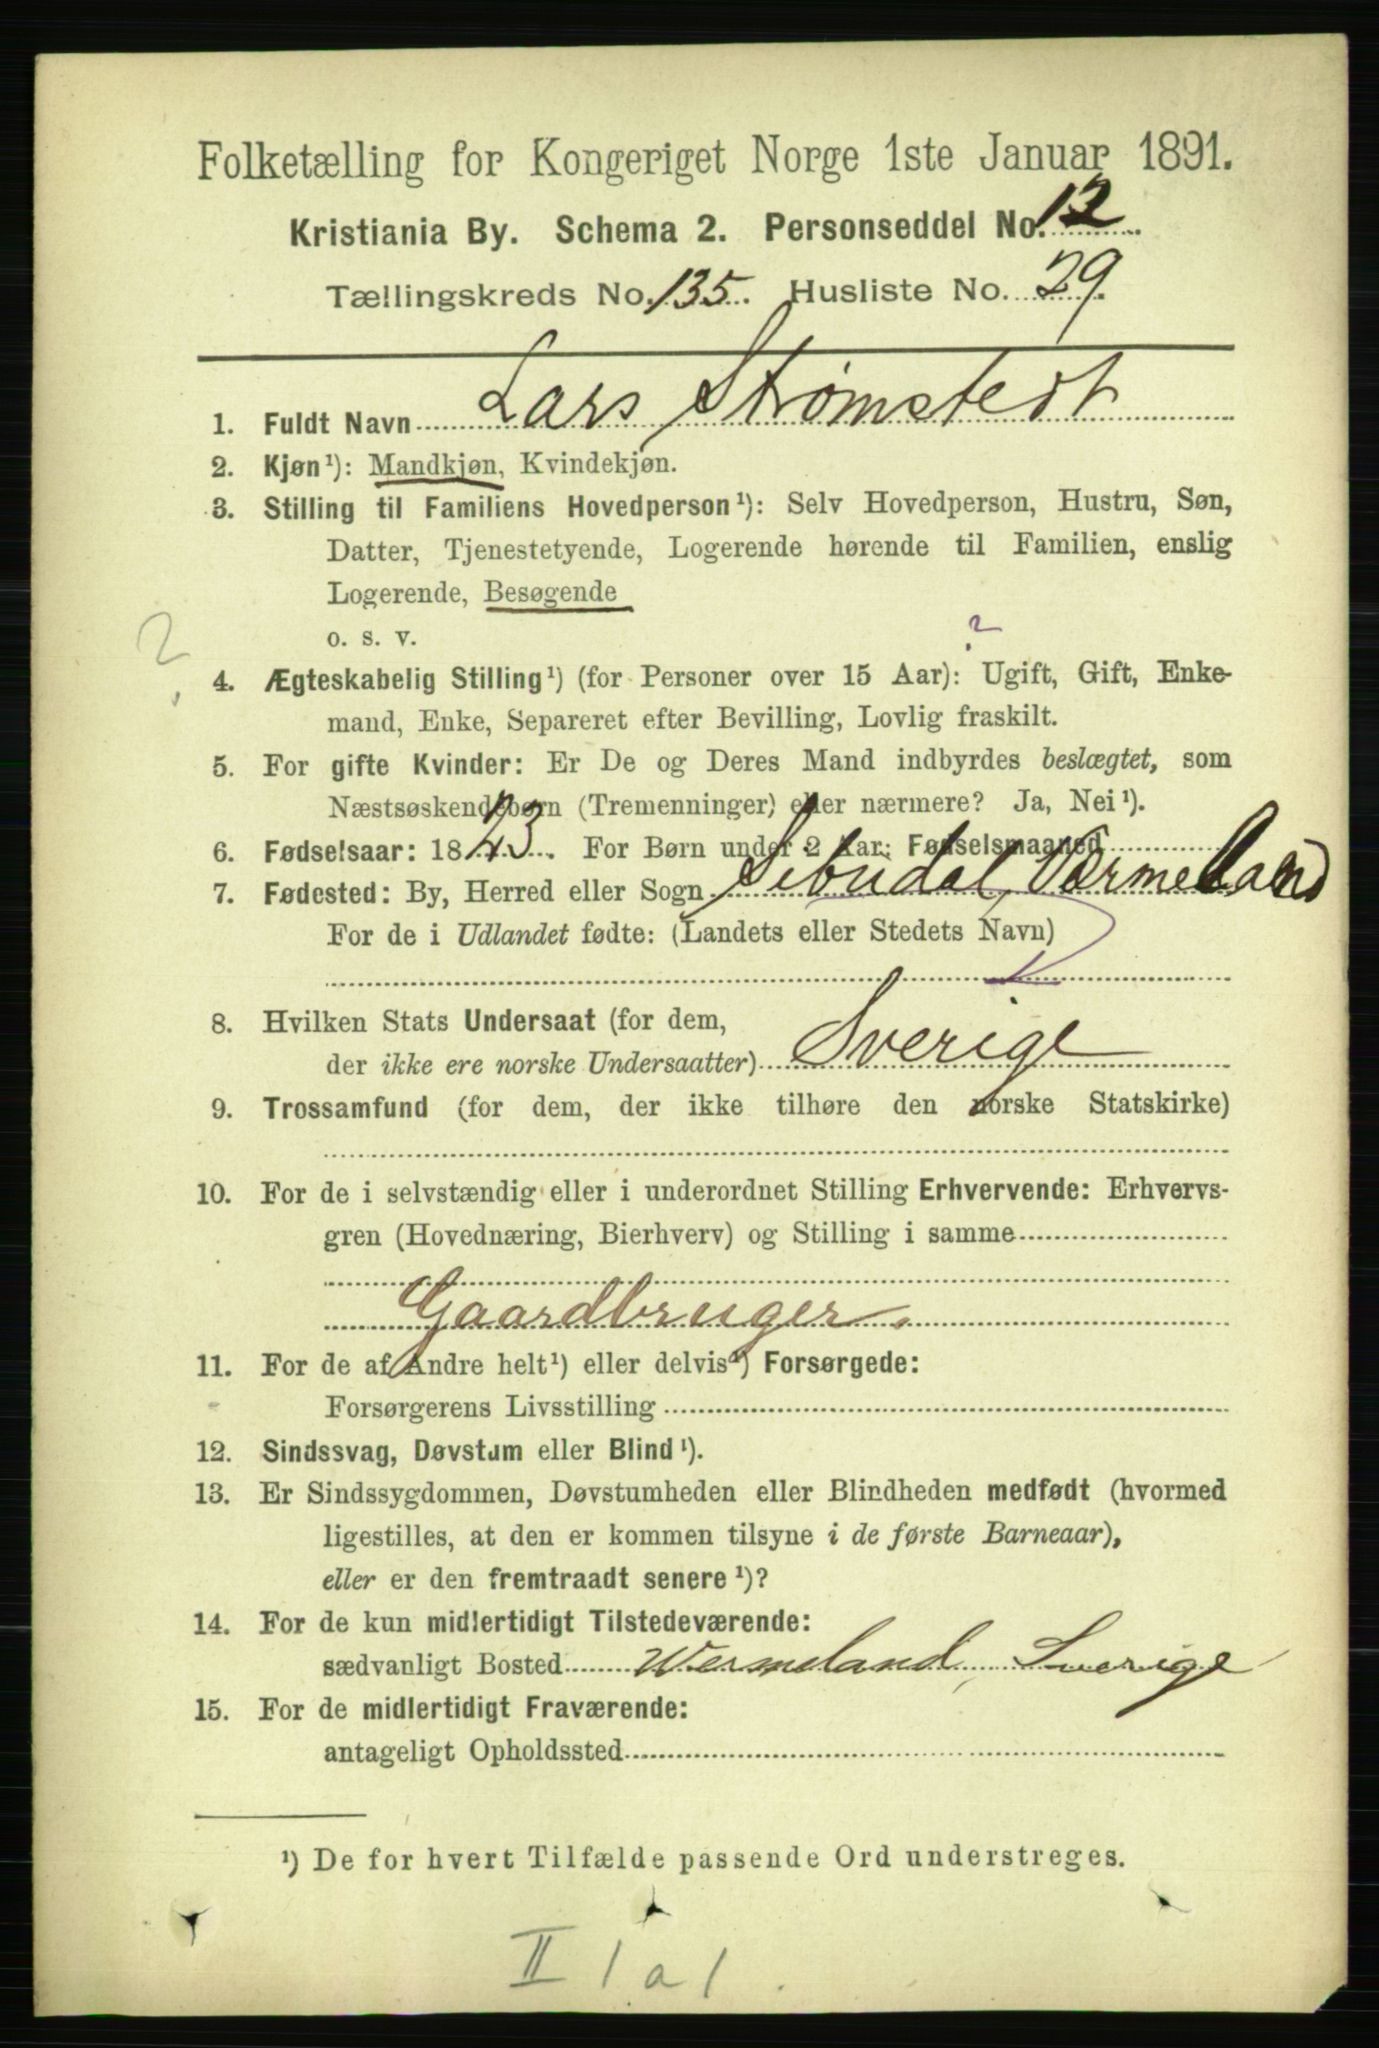 Folketælling for Kongeriget Norge 1ste Januar 1891.
Kristiania By. Schema 2. Personseddel No. 12
Tællingskreds No. 135. Husliste No. 29.
1. Fuldt Navn Lars Strømstedt
2. Kjøn¹): Mandkjøn, Kvindekjøn.
3. Stilling til Familiens Hovedperson¹): Selv Hovedperson, Hustru, Søn,
Datter, Tjenestetyende, Logerende hørende til Familien, enslig
Logerende, Besøgende
o. s. v.
?
?
4. Ægteskabelig Stilling¹) (for Personer over 15 Aar): Ugift, Gift, Enke-
mand, Enke, Separeret efter Bevilling, Lovlig fraskilt.
5. For gifte Kvinder: Er De og Deres Mand indbyrdes beslægtet, som
Næstsøskendebørn (Tremenninger) eller nærmere? Ja, Nei¹).
6. Fødselsaar: 1823. For Børn under 2 Aar: Fødselsmaaned
7. Fødested: By, Herred eller Sogn Værmeland
For de i Udlandet fødte: (Landets eller Stedets Navn)
8. Hvilken Stats Undersaat (for dem,
der ikke ere norske Undersaatter) Sverige
9. Trossamfund (for dem, der ikke tilhøre den norske Statskirke)
10. For de i selvstændig eller i underordnet Stilling Erhvervende: Erhvervs-
gren (Hovednæring, Bierhverv) og Stilling i samme
Gaardbruger.
11. For de af Andre helt¹) eller delvis¹) Forsørgede:
Forsørgerens Livsstilling
12. Sindssvag, Døvstum eller Blind¹).
13. Er Sindssygdommen, Døvstumheden eller Blindheden medfødt (hvormed
ligestilles, at den er kommen tilsyne i de første Barneaar),
eller er den fremtraadt senere¹)?
14. For de kun midlertidigt Tilstedeværende:
sædvanligt Bosted Wermeland, Sverige
15. For de midlertidigt Fraværende:
antageligt Opholdssted
¹) De for hvert Tilfælde passende Ord understreges.
II 1 a 1.